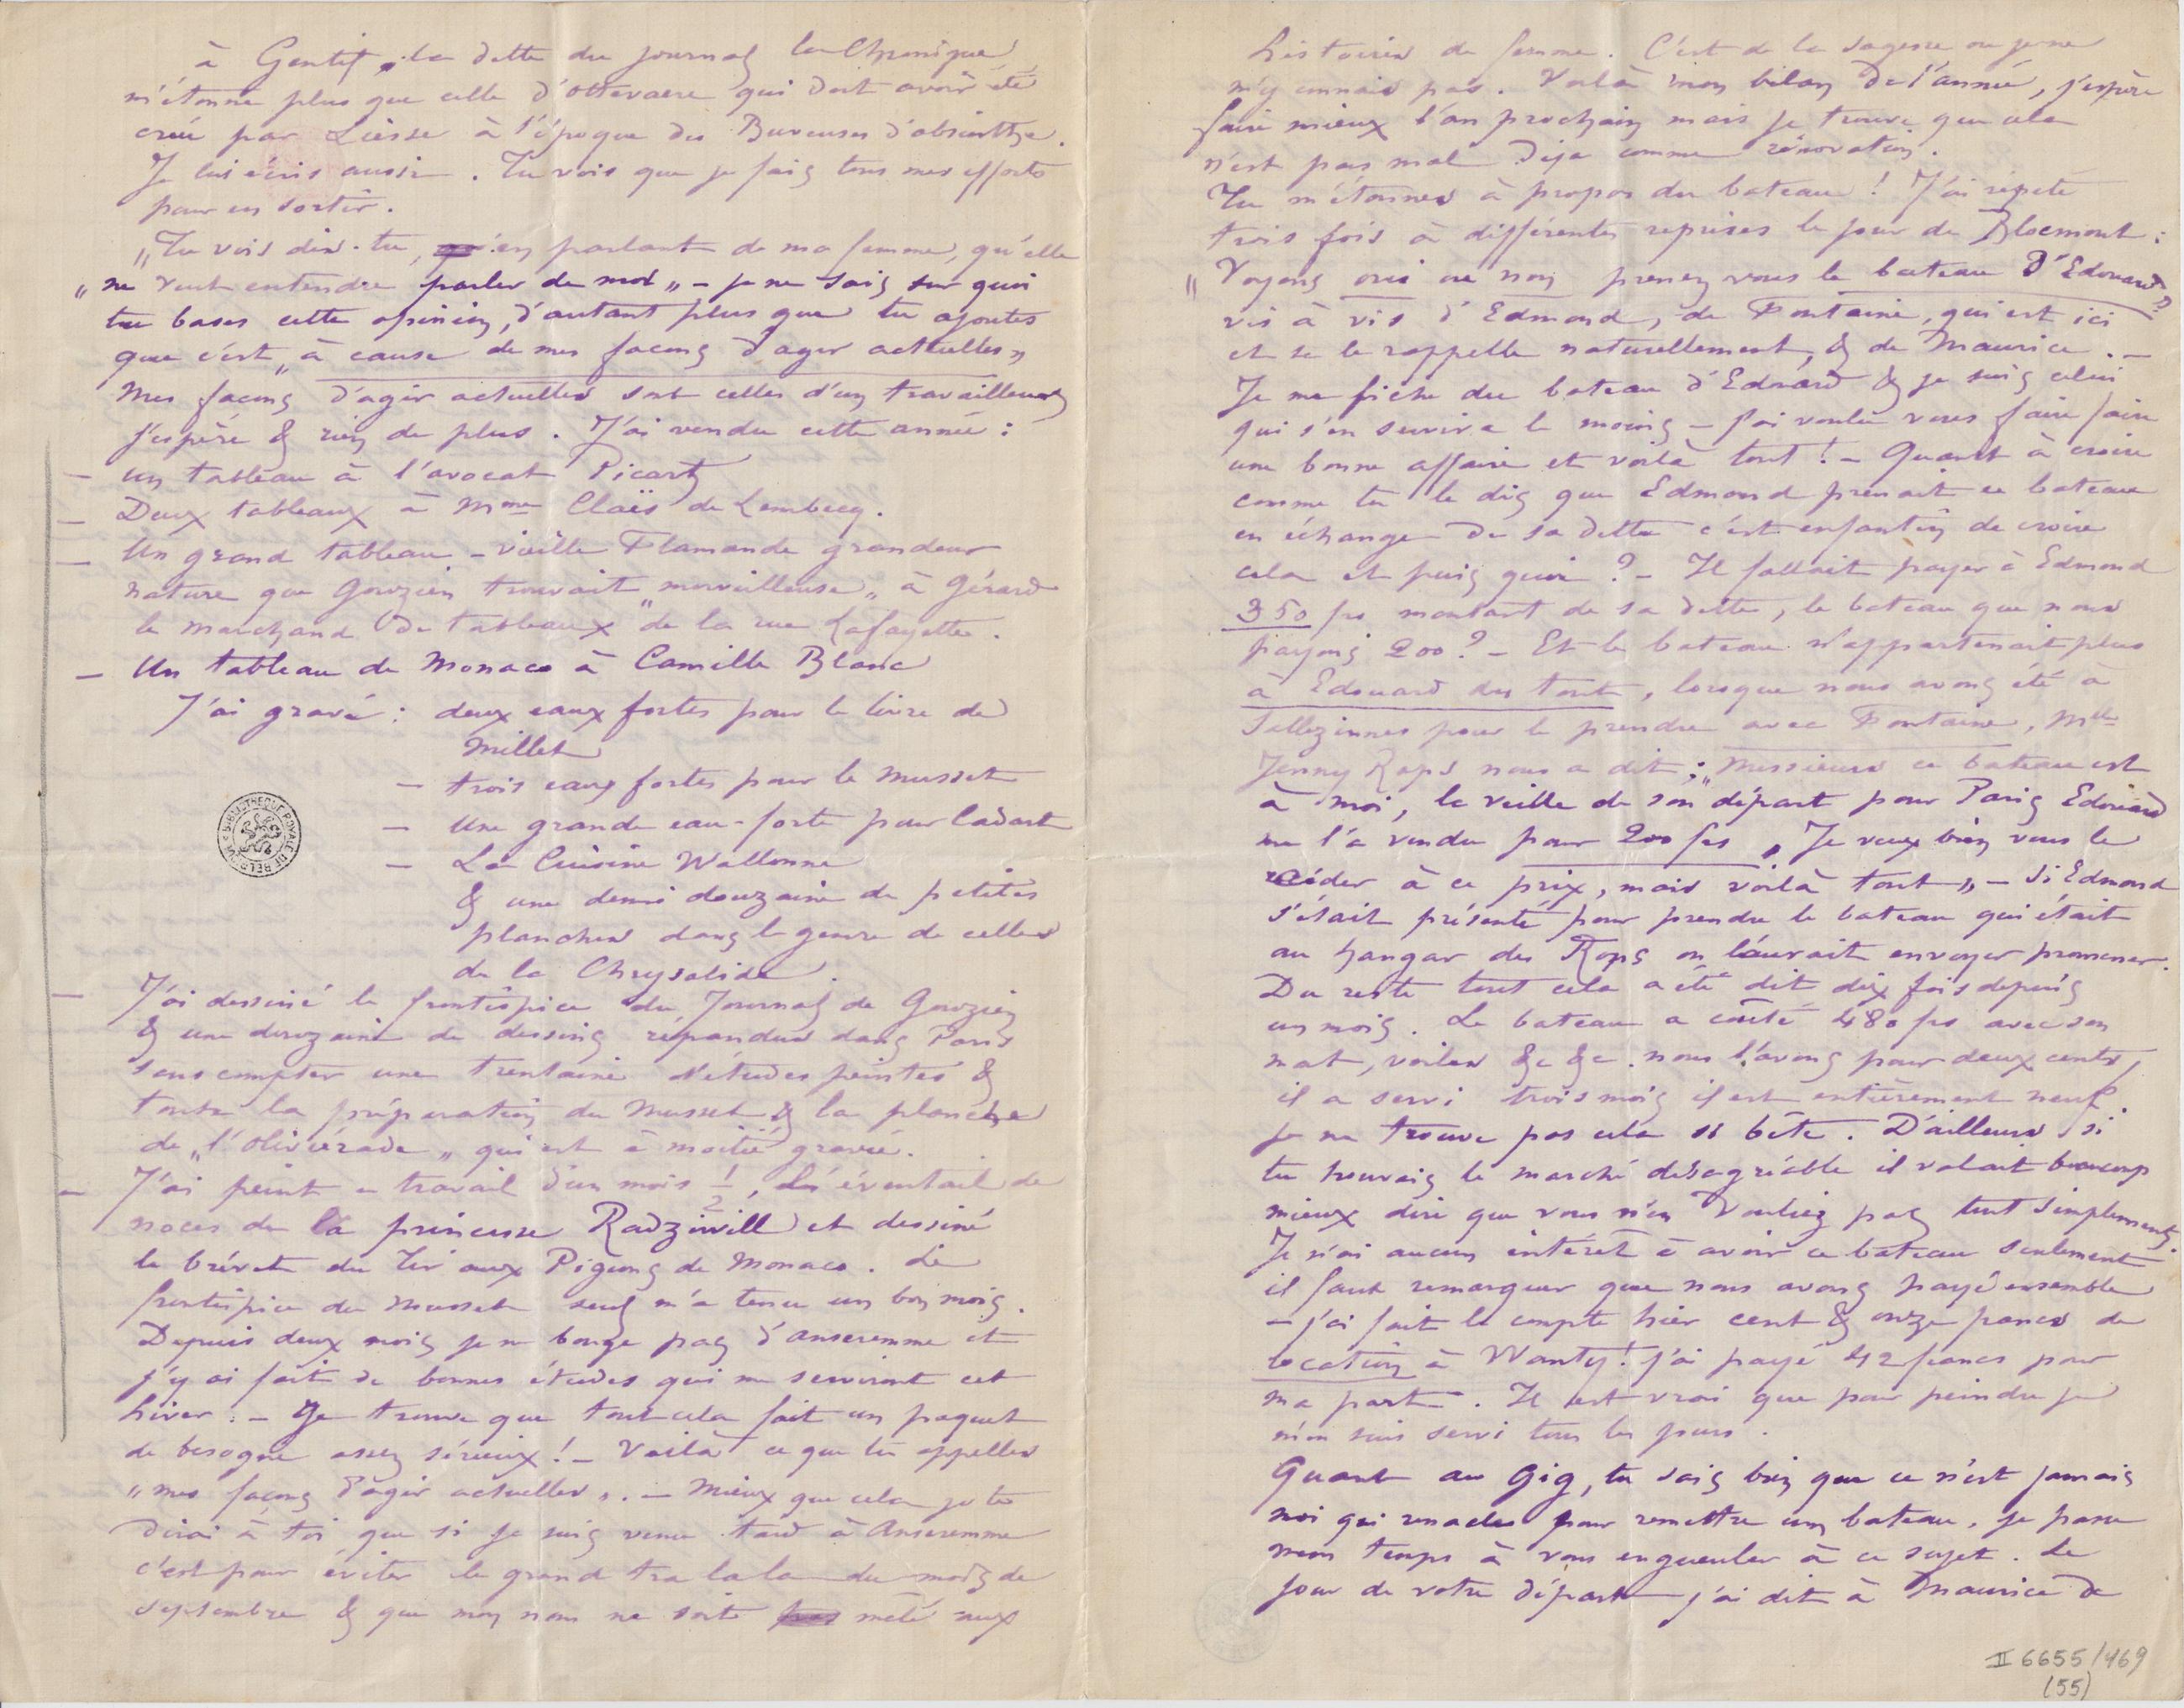 à Gentif, la dette du journal la Chronique
m'étonne plus que celle d'Ottevaere qui doit avoir été
créé par Liesse à l'époque des Buveuses d'absinthe.
Je lui écris aussi. Tu vois que je fais tous mes efforts
pour en sortir.
"Tu vois dis-tu, en parlant de ma femme, qu'elle
"ne veut entendre parler de moi" – je ne sais sur quoi
tu bases cette opinion, d'autant plus que tu ajoutes
que c'est "à cause de mes façons d'agir actuelles"
Mes façons d'agir actuelles sont celles d'un travailleur
j'espère & rien de plus. J'ai vendu cette année :
– un tableau à l'avocat Picart
– Deux tableaux à Mme Claës de Lembecq.
– Un grand tableau – vieille Flamande grandeur
nature que Gouzien trouvait "merveilleuse" à Gérard
le marchand de tableaux de la rue Lafayette.
– Un tableau de Monaco à Camille Blanc
J'ai gravé : deux eaux fortes pour le livre de
Millet
– trois eaux fortes pour le Musset
– Une grande eau-forte pour Cadart
– La Cuisine Wallonne
& une demi douzaine de petites
planches dans le genre de celles
de la Chrysalide.
– J'ai dessiné le frontispice du Journal de Gouzien
& une douzaine de dessins répandus dans Paris
sans compter une trentaine d'études peintes &
toute la préparation du Musset & la planche
de "l'Oliviérade" qui est à moitié gravée.
– J'ai peint ce travail d'un mois 1/2, L'éventail de
noces de la princesse Radziwill et dessiné
le brévet du Tir aux Pigeons de Monaco. Le
frontispice du Musset seul m'a tenu un bon mois.
Depuis deux mois je ne bouge pas d'anseremme et
j'y ai fait de bonnes études qui me serviront cet
hiver. – Je trouve que tout cela fait un paquet
de besogne assez sérieux ! – Voilà ce que tu appelles
"mes façons d'agir actuelles". – Mieux que cela je te
dirai à toi que si je suis venu tard à Anseremme
c'est pour éviter le grand tra la la du mois de
septembre & que mon nom ne soit pas mêlé aux
histoires de femme. C'est de la sagesse ou je ne
m'y connais pas. Voilà mon bilan de l'année, j'espère
faire mieux l'an prochain mais je trouve que cela
n'est pas mal déja comme rénovation.
Tu m'étonnes à propos du bateau ! J'ai répété
trois fois à différentes reprises le jour de Blocmont :
"Voyons oui ou non prenez vous le bateau d'Edouard ?"
vis à vis d'Edmond, de Fontaine, qui est ici
et se le rappelle naturellement, & de Maurice. –
Je me fiche du bateau d'Edouard & je suis celui
qui s'en servira le moins – j'ai voulu vous faire faire
une bonne affaire et voilà tout ! – Quant à croire
comme tu le dis que Edmond prenait ce bateau
en échange de sa dette c'est enfantin de croire
cela et puis quoi ? – Il fallait payer à Edmond
350 frs montant de sa dette, le bateau que nous
payons 200 ? – Et le bateau n'appartenait plus
à Edouard du tout, lorsque nous avons été à
Tellezinnes pour le prendre avec Fontaine, Mlle
Jenny Rops nous a dit : "Messieurs ce bateau est
à moi, la veille de son départ pour Paris Edouard
me l'a vendu pour 200 frs, Je veux bien vous le
céder à ce prix, mais voilà tout" – Si Edmond
s'était présenté pour prendre le bateau qui était
au hangar des Rops on l'aurait envoyer promener.
Du reste tout cela a été dit dix fois depuis
un mois. Le bateau a coûté 480 frs avec son
mat, voiles &c &c. nous l'avons pour deux cents,
il a servi trois mois il est entièrement neuf.
je ne trouve pas cela si bête. D'ailleurs si
tu trouvais le marché désagréable il valait beaucoup
mieux dire que vous n'en vouliez pas tout simplement.
Je n'ai aucun intérêt à avoir ce bateau seulement
il faut remarquer que nous avons payé ensemble
– j'ai fait le compte hier cent & onze francs de
location à Wanty ! j'ai payé 42 francs pour
ma part. Il est vrai que pour peindre je
m'en suis servi tous les jours.
Quant au Gig, tu sais bien que ce n'est jamais
moi qui renacle pour remettre un bateau, je passe
mon temps à vous engueuler à ce sujet. Le
jour de votre départ j'ai dit à Maurice de
BIBLIOTHEQUE ROYALE DE BELGIQUE
II 6655/469
(55)